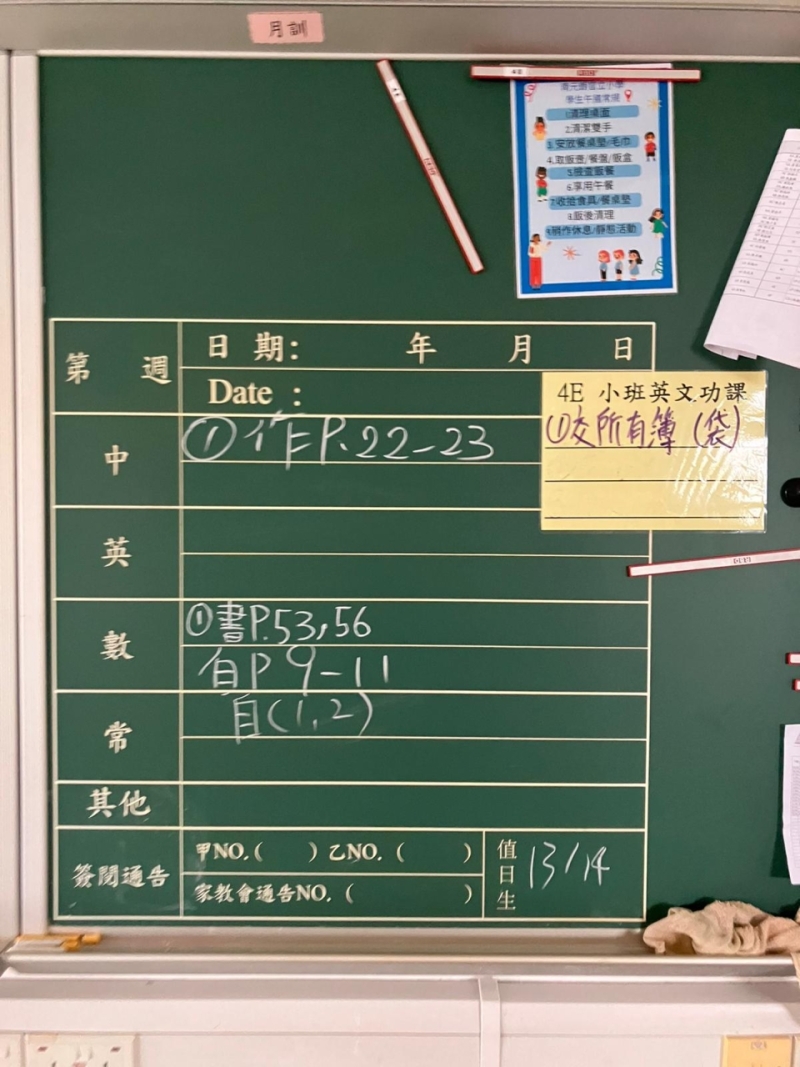 月訓
學生午膳常規
1.清理桌面
2.清潔雙手
3.安放餐桌墊/毛巾
4.取飯壺/餐盤/飯盒
5.檢查飯餐
6.享用午餐
7.收拾食具/餐桌墊
8.飯後清理
9.稍作休息/靜態活動
第 週
日期: 年 月 日
Date :
4E 小班英文功課
①交所有簿(袋)
中
①作P.22-23
英
數
①書P.53,56
自P 9-11
常
自(1,2)
其他
簽閱通告
甲NO.( ) 乙NO.( )
家教會通告NO.( )
值日生
13/14